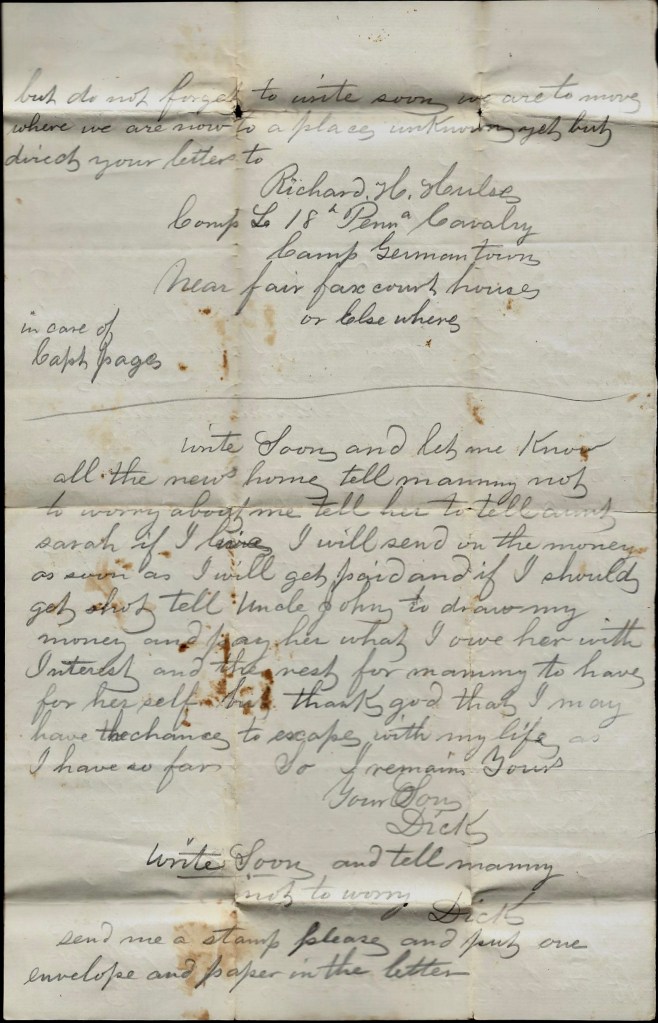 but do not forget to write soon we are to move
where we are now to a place unknown yet but
direct your letter to
Richard. H. Hulse
Comp L 18th Penna Cavalry
Camp Germantown
Near fair fax court house
or Else where
in care of
Capt page
write Soon and let me Know
all the news home tell mammy not
to worry about me tell her to tell aunt
sarah if I live I will send in the money
as soon as I will get paid and if I should
get shot tell Uncle John to draw my
money and pay her what I owe her with
Interest and the rest for mammy to have
for her self but thank god that I may
have the chance to escape with my life as
I have so far So I remain Yours
Your Son
Dick
Write Soon and tell mammy
not to worry
Dick
send me a stamp please and put one
envelope and paper in the letter